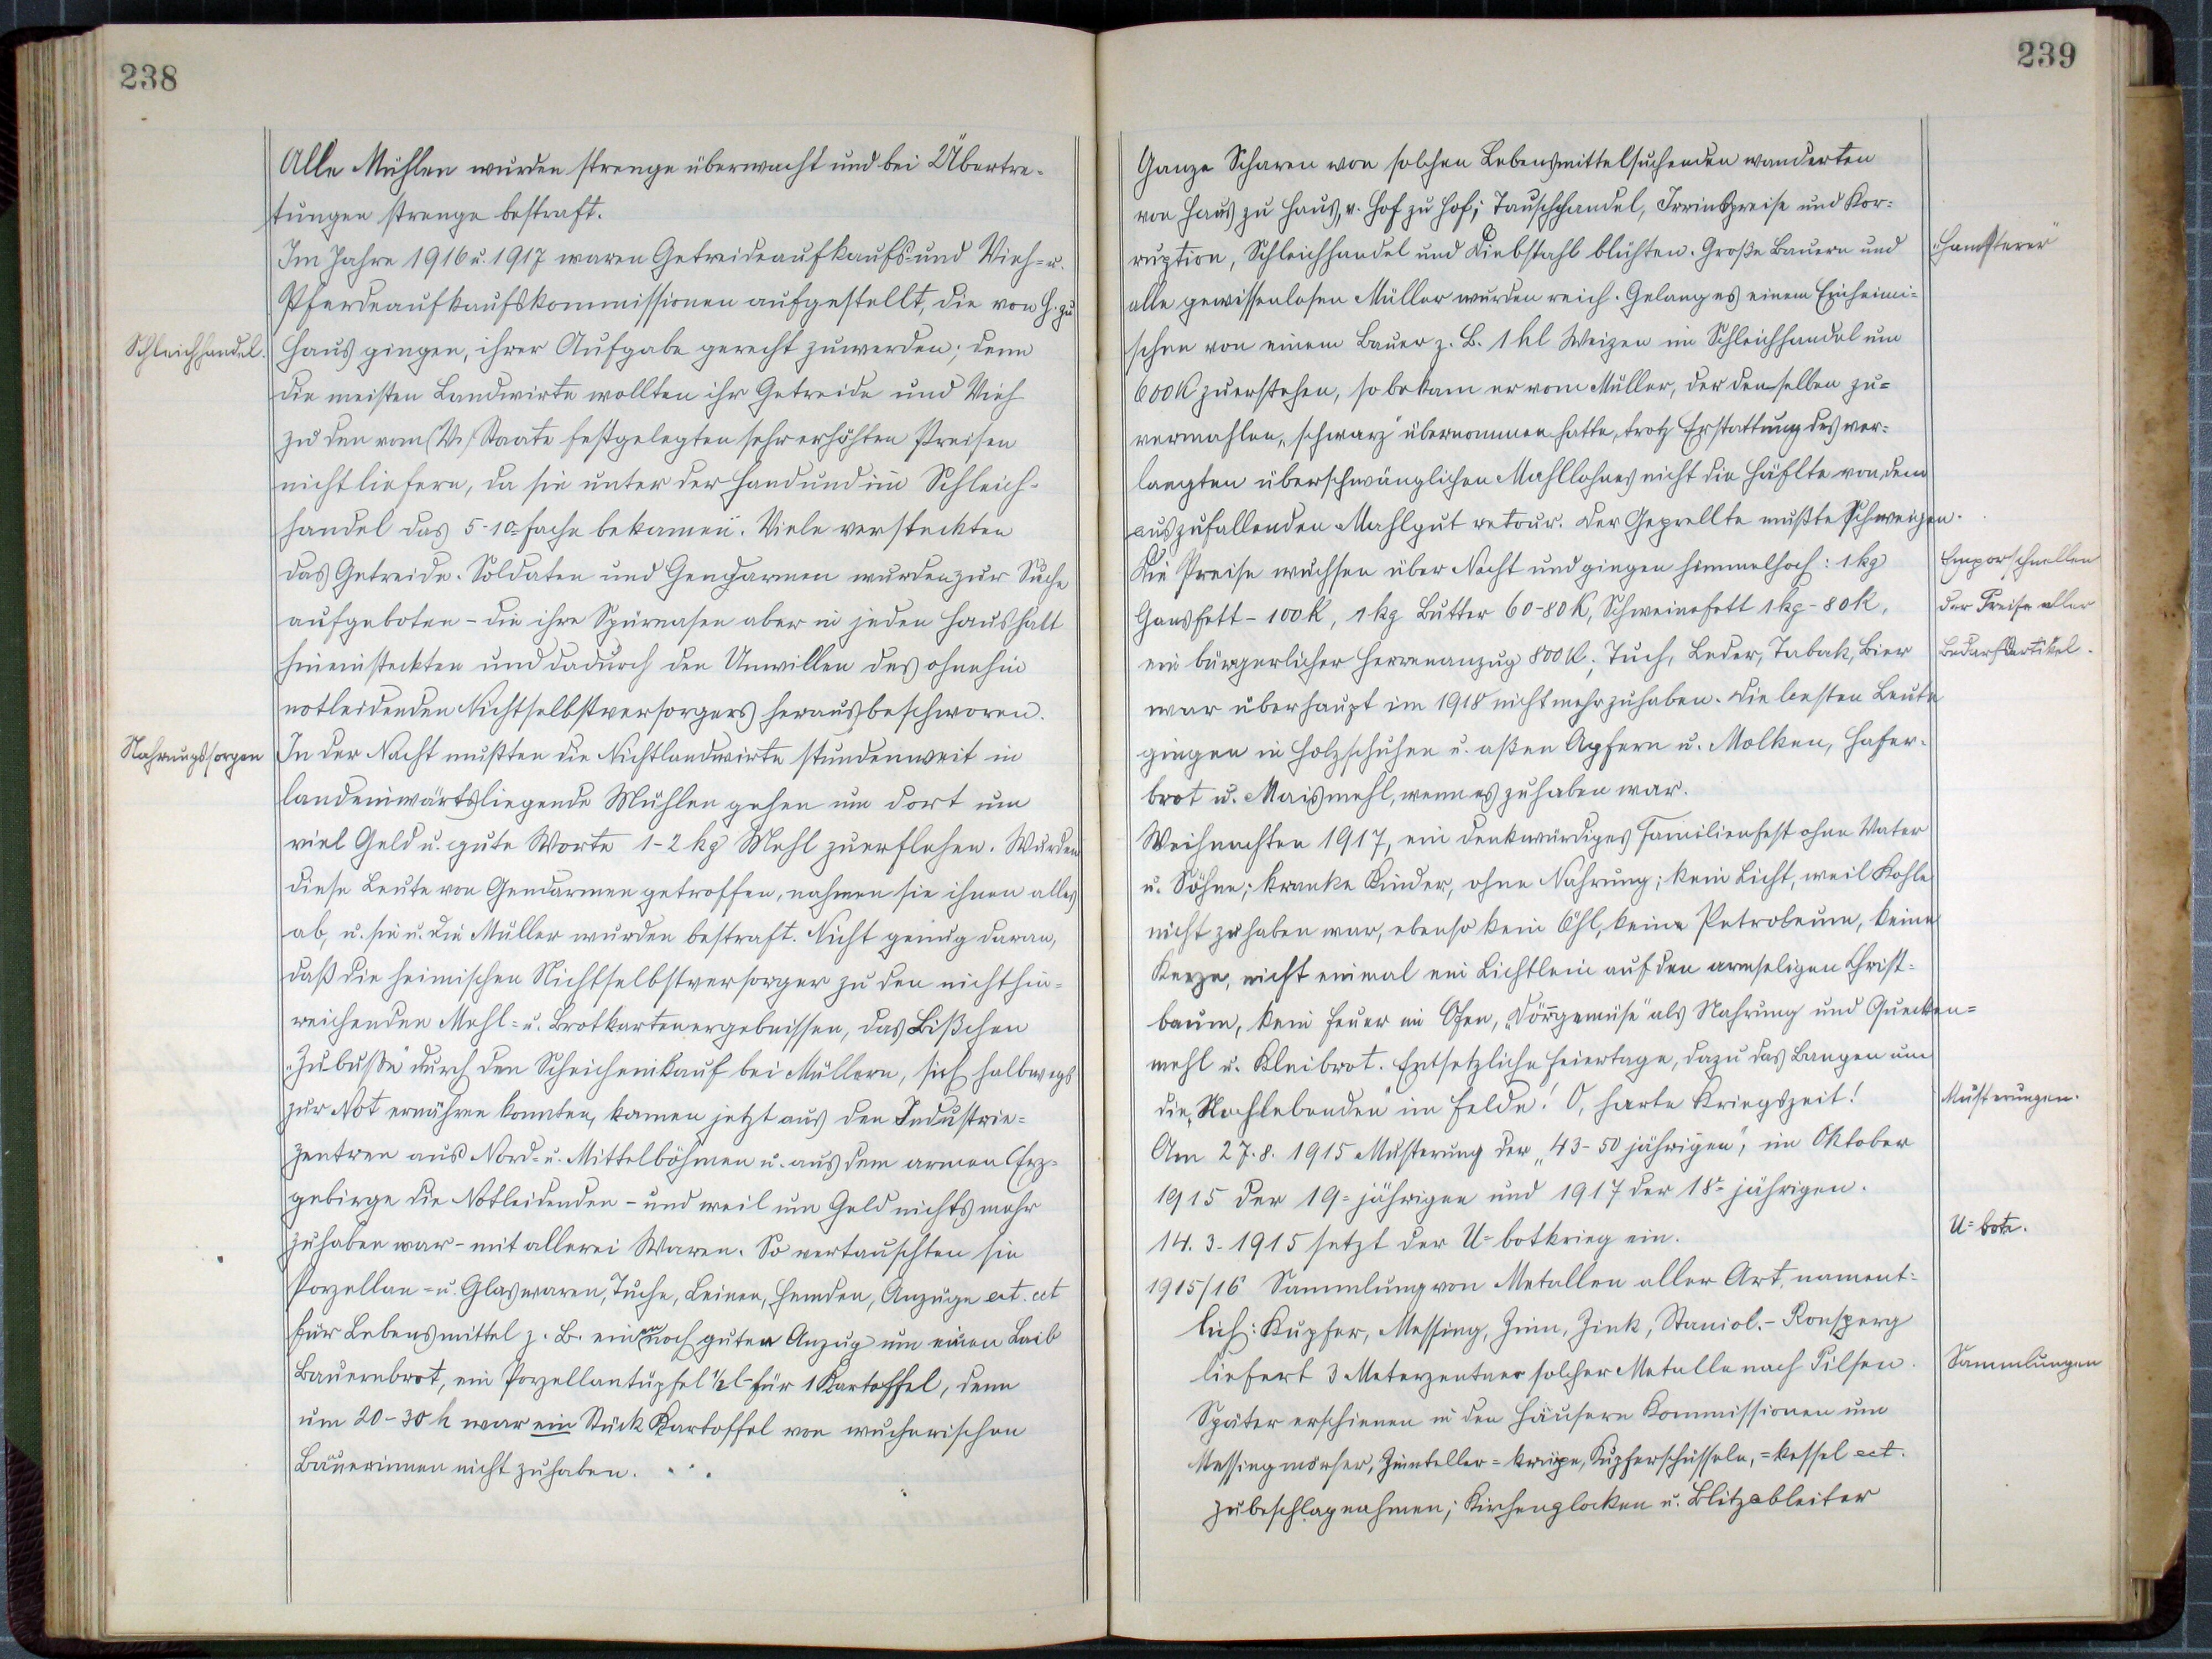 238
Alle Mühlen wurden strenge überwacht und bei Übertre-
tungen strenge bestraft.
Im Jahre 1916 u. 1917 waren Getreideaufkaufs- und Vieh- u.
Pferdeaufkaufskommissionen aufgestellt, die von H. zu
Schleichhandel.
Haus gingen, ihrer Aufgabe gerecht zuwerden; denn
die meisten Landwirte wollten ihr Getreide und Vieh
zu den vom (V.) Staate festgelegten sehr erhöhten Preisen
nicht liefern, da sie unter der Hand und im Schleich-
handel das 5-10-fache bekamen. Viele versteckten
das Getreide. Soldaten und Gendarmen wurden zur Suche
aufgeboten - die ihre Spürnasen aber in jeden Haushalt
hineinsteckten und dadurch den Unwillen des ohnehin
notleidenden Nichtselbstversorgers herausbeschworen.
Nahrungssorgen
In der Nacht mußten die Nichtlandwirte stundenweit in
landeinwärtsliegende Mühlen gehen um dort um
viel Geld u. gute Worte 1-2 kg Mehl zuerflehen. Wurden
diese Leute von Gendarmen getroffen, nahmen sie ihnen alles
ab, u. sie u. die Müller wurden bestraft. Nicht genug daran,
daß die heimischen Nichtselbstversorger zu den nichthin-
reichenden Mehl- u. Brotkartenergebnissen, das Bißchen
"Zubusse" durch den Schleicheinkauf bei Müllern, sich halbwegs
zur Not ernähren konnten, kamen jetzt aus den Industrie-
zentren aus Nord- u. Mittelböhmen u. aus dem armen Erz-
gebirge die Notleidenden - und weil um Geld nichts mehr
zuhaben war - mit allerei Waren. So vertauschten sie
Porzellan- u. Glaswaren, Tuche, Leinen, Hemden, Anzüge ect. ect
für Lebensmittel z. B. einen noch guten Anzug um einen Laib
Bauernbrot, ein Porzellantüpfel ½ l für 1 Kartoffel, denn
um 20-30 h war ein Stück Kartoffel von wucherischen
Bäuerinnen nicht zuhaben. . . .
239
Ganze Scharen von solchen Lebensmittelsuchenden wanderten
von Haus zu Haus, v. Hof zu Hof; Tauschhandel, Irrsinspreise und Kor-
ruption, Schleichhandel und Diebstahl blühten. Große Bauern und
"Hamsterer"
alle gewissenlosen Müller wurden reich. Gelang es einem Einheimi-
schen von einem Bauer z. B. 1 hl Weizen im Schleichhandel um
600 K zuerstehen, so bekam er vom Müller, der denselben zu-
vermahlen "schwarz" übernommen hatte, trotz Erstattung des ver-
langten überschwänglichen Mahllohnes nicht die Häflte von dem
auszufallenden Mahlgut retour. Der Geprellte mußte schweigen.
Die Preise wuchsen über Nacht und gingen himmelhoch: 1 kg
Emporschnellen
Gansfett - 100 K, 1 kg Butter 60-80 K, Schweinefett 1 kg - 80 K,
der Preise aller
ein bürgerlicher Herrenanzug 800 K; Tuch, Leder, Tabak, Bier
Bedarfsartikel.
war überhaupt im 1918 nicht mehr zuhaben. Die besten Leute
gingen in Holzschuhen u. aßen u. Molken, Hafer-
brot u. Maismehl, wenn es zuhaben war.
Weihnachten 1917, ein denkwürdiges Familienfest ohne Vater
u. Söhne; kranke Kinder, ohne Nahrung; kein Licht, weil Kohle
nicht zu haben war, ebenso kein Öhl, kein Petroleum, keine
Kerze, nicht einmal ein Lichtlein auf den armseligen Christ-
baum, kein Feuer im Ofen, "Dörrgemüse" als Nahrung und Quecken-
mehl u. Kleibrot. Entsetzliche Feiertage, dazu das Bangen um
die "Nochlebenden" im Felde! O, harte Kriegszeit!
Musterungen.
Am 27.8. 1915 Musterung der "43-50 jährigen", im Oktober
1915 der 19-jährigen und 1917 der 18-jährigen.
U-bote.
14. 3. 1915 setzt der U-botkrieg ein.
1915/16 Sammlung von Metallen aller Art, nament-
lich: Kupfer, Messing, Zinn, Zink, Staniol. - Ronsperg
liefert 3 Meterzentner solcher Metalle nach Pilsen.
Sammlungen
Später erschienen in den Häusern Kommissionen um
Messingmörser, Zinnteller- krüge, Kupferschüsseln, -kessel ect.
zubeschlagnahmen; Kirchenglocken u. Blitzableiter